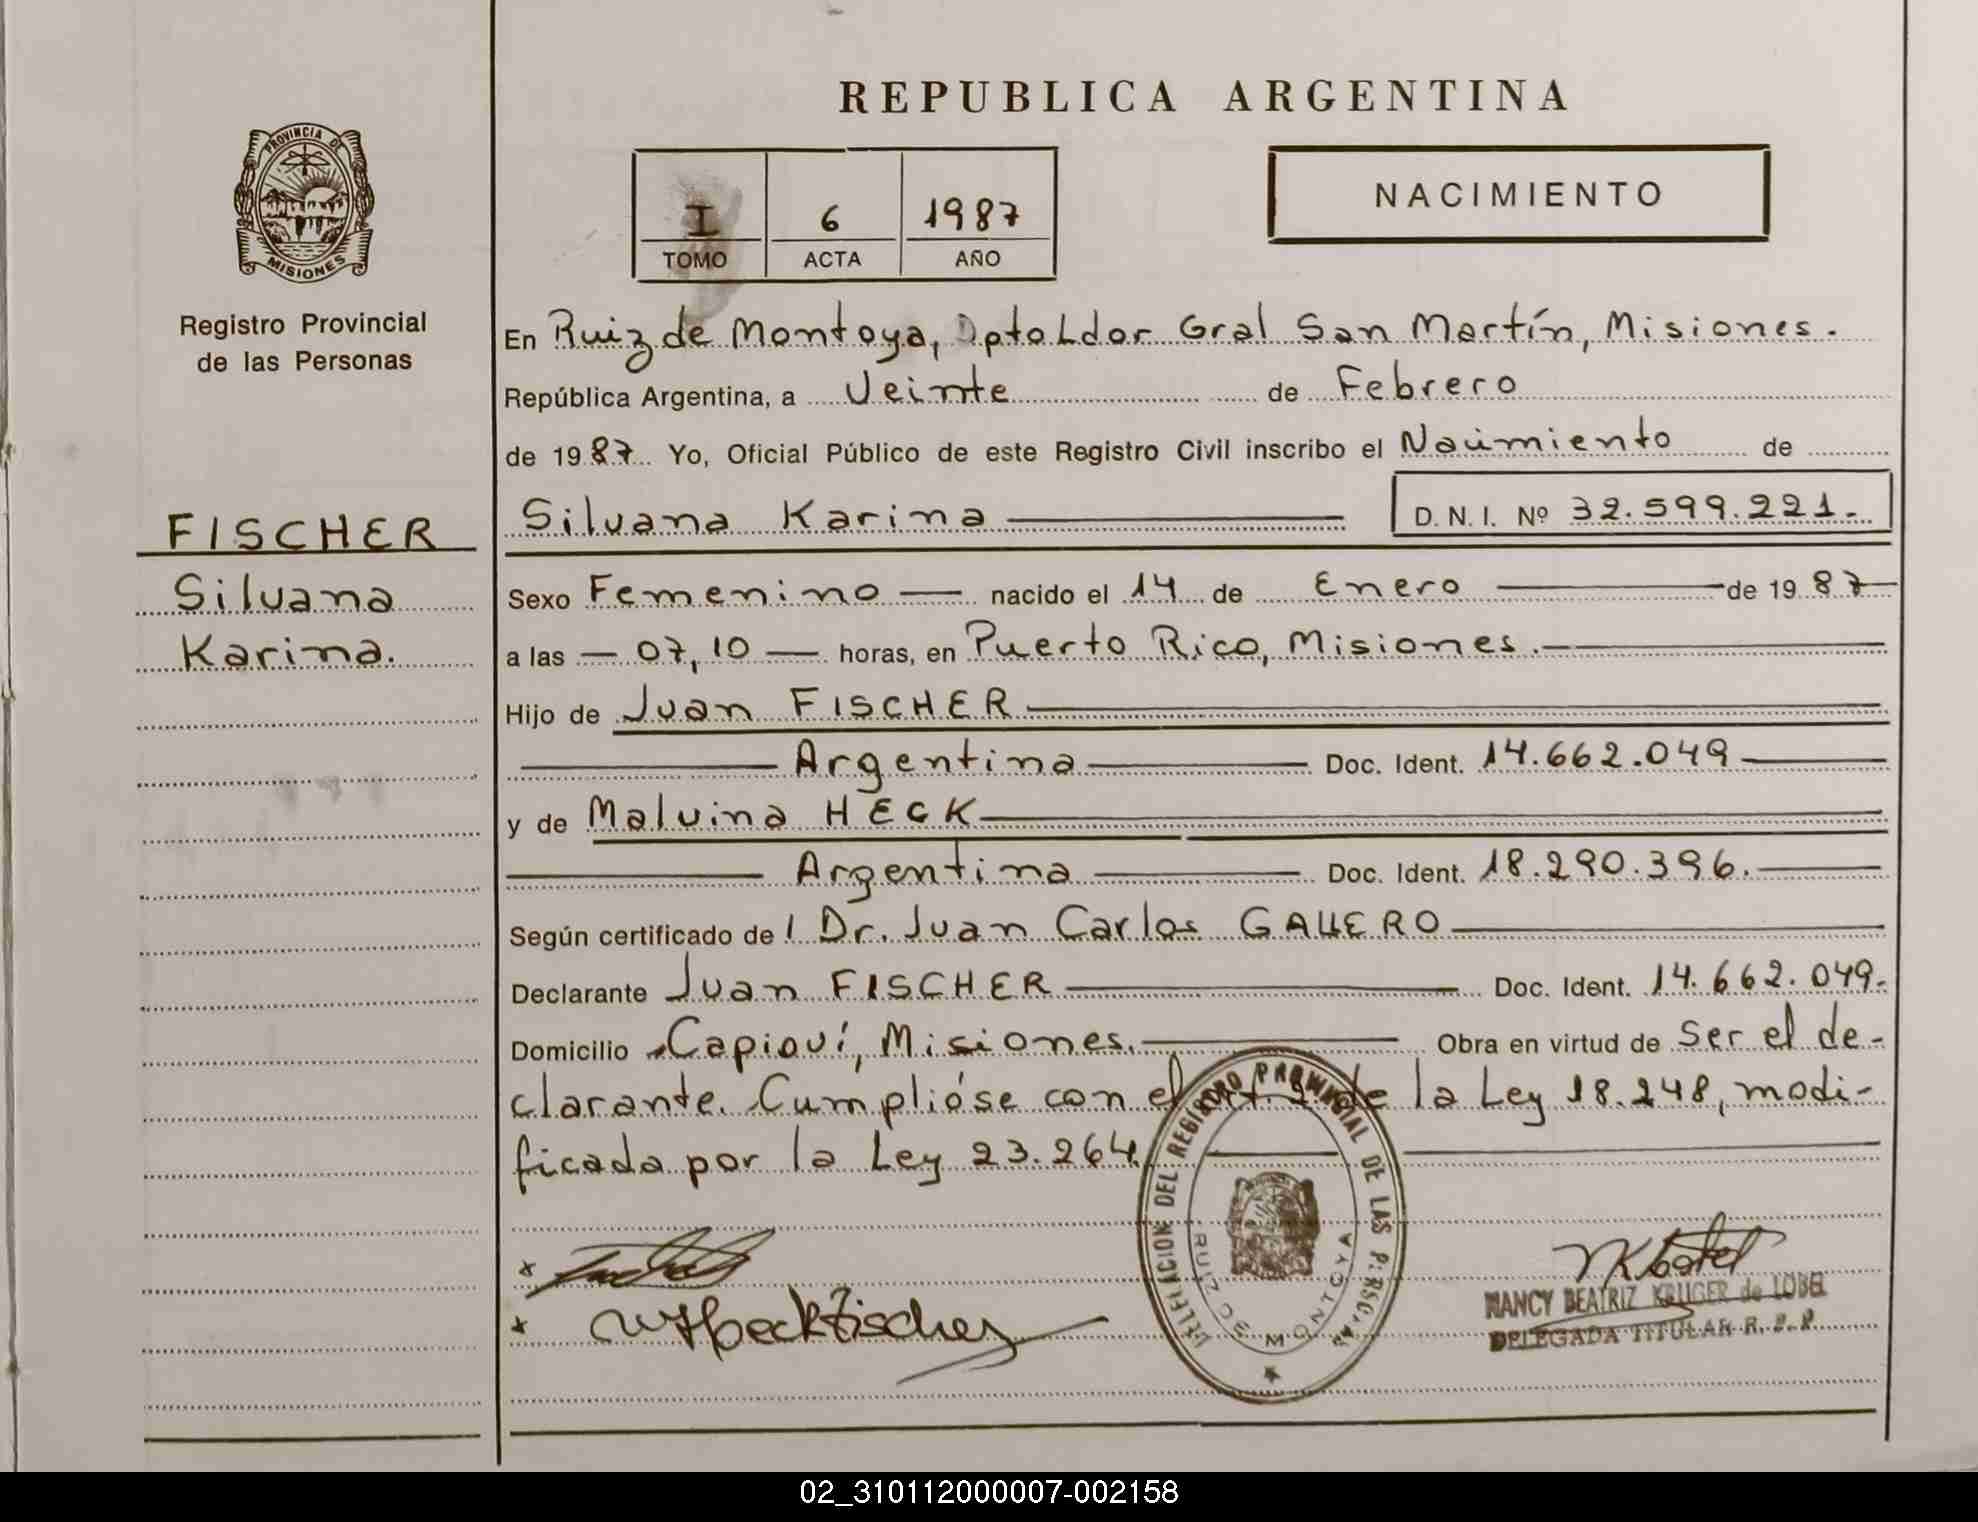 REPUBLICA ARGENTINA
PROVINCIA DE MISIONES
Registro Provincial
de las Personas
I 6 1987
TOMO ACTA AÑO
NACIMIENTO
En Ruiz de Montoya, Dpto Ldor Gral San Martín, Misiones.
República Argentina, a Veinte de Febrero
de 1987 Yo, Oficial Público de este Registro Civil inscribo el Nacimiento de
FISCHER
Silvana Karina D.N.I. Nº 32.599.221.
Silvana
Karina.
Sexo Femenino nacido el 14 de Enero de 1987
a las 07,10 horas, en Puerto Rico, Misiones.
Hijo de Juan FISCHER
Argentina Doc. Ident. 14.662.049
y de Malvina HECK
Argentina Doc. Ident. 18.290.396.
Según certificado de l Dr. Juan Carlos GALLERO
Declarante Juan FISCHER Doc. Ident. 14.662.049.
Domicilio Capioví, Misiones. Obra en virtud de Ser el de-
clarante. Cumplióse con el de la Ley 18.248, modi-
ficada por la Ley 23.264.
DELEGACION DEL REGISTRO PROVINCIAL DE LAS PERSONAS
RUIZ DE MONTOYA
Heck Fischer
NANCY BEATRIZ KRUGER de LOBEL
DELEGADA TITULAR R. P. P.
02_310112000007-002158